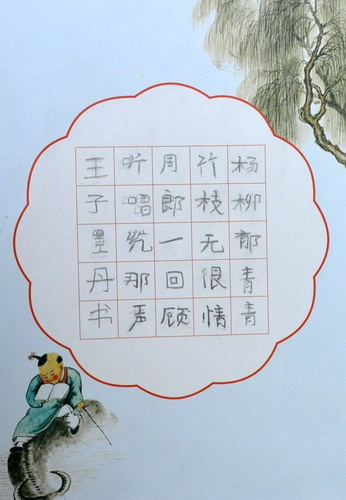 杨柳郁青青
竹枝无恨情
周郎一回顾
听唱纥那声
王子墨丹书